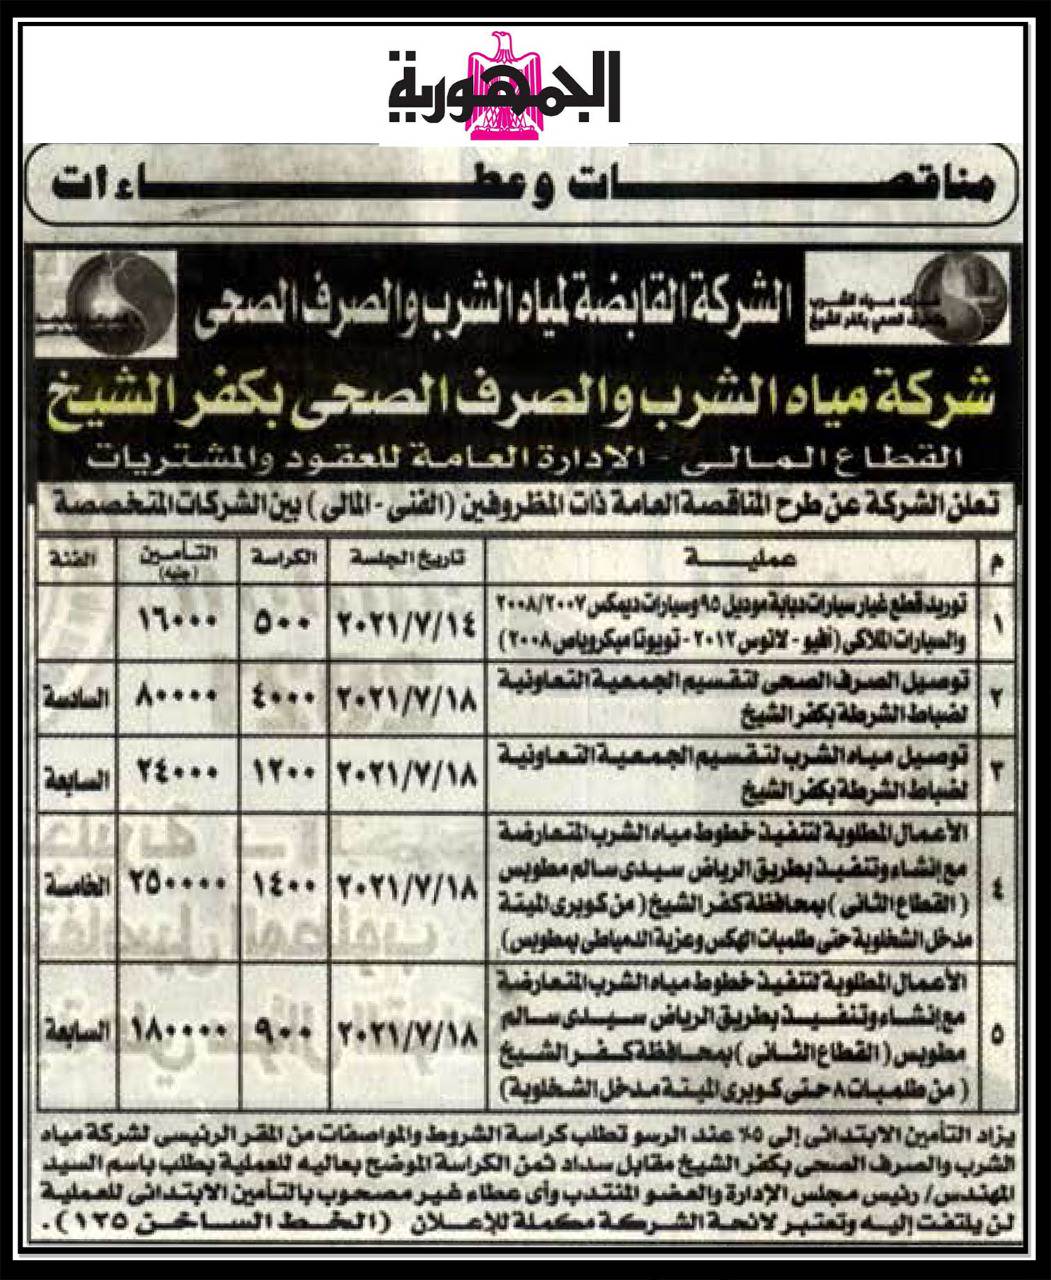 الجمهورية
مناقصات وعطاءات
الشركة القابضة لمياه الشرب والصرف الصحى
شركة مياه الشرب
والصرف الصحي بكفر الشيخ
شركة مياه الشرب والصرف الصحى بكفر الشيخ
القطاع المالى - الإدارة العامة للعقود والمشتريات
تعلن الشركة عن طرح المناقصة العامة ذات المظروفين (الفنى - المالى) بين الشركات المتخصصة
م عمليـة تاريخ الجلسة الكراسة التأمين (جنيه) الفئة
١ توريد قطع غيار سيارات دبابة موديل ٩٥ وسيارات ديمكس ٢٠٠٨/٢٠٠٧
والسيارات الملاكى (أفيو - لانوس ٢٠١٢ - تويوتا ميكروباص ٢٠٠٨) ٢٠٢١/٧/١٤ ٥٠٠ ١٦٠٠٠
٢ توصيل الصرف الصحى لتقسيم الجمعية التعاونية
لضباط الشرطة بكفر الشيخ ٢٠٢١/٧/١٨ ٤٠٠٠ ٨٠٠٠٠ السادسة
٣ توصيل مياه الشرب لتقسيم الجمعية التعاونية
لضباط الشرطة بكفر الشيخ ٢٠٢١/٧/١٨ ١٢٠٠ ٢٤٠٠٠ السابعة
٤ الأعمال المطلوبة لتنفيذ خطوط مياه الشرب المتعارضة
مع إنشاء وتنفيذ بطريق الرياض سيدى سالم مطوبس
(القطاع الثانى) بمحافظة كفر الشيخ (من كوبرى الميتة
مدخل الشخلوبة حتى طلمبات الهكس وعزبة الدمياطى بمطوبس) ٢٠٢١/٧/١٨ ١٤٠٠ ٢٥٠٠٠٠ الخامسة
٥ الأعمال المطلوبة لتنفيذ خطوط مياه الشرب المتعارضة
مع إنشاء وتنفيذ بطريق الرياض سيدى سالم
مطوبس (القطاع الثانى) بمحافظة كفر الشيخ
(من طلمبات ٨ حتى كوبرى الميتة مدخل الشخلوبة) ٢٠٢١/٧/١٨ ٩٠٠ ١٨٠٠٠٠ السابعة
يزاد التأمين الابتدائى إلى ٥٪ عند الرسو تطلب كراسة الشروط والمواصفات من المقر الرئيسى لشركة مياه
الشرب والصرف الصحى بكفر الشيخ مقابل سداد ثمن الكراسة الموضح بعاليه للعملية بطلب باسم السيد
المهندس/ رئيس مجلس الإدارة والعضو المنتدب وأى عطاء غير مصحوب بالتأمين الابتدائى للعملية
لن يلتفت إليه وتعتبر لائحة الشركة مكملة للإعلان (الخط الساخن ١٢٥).